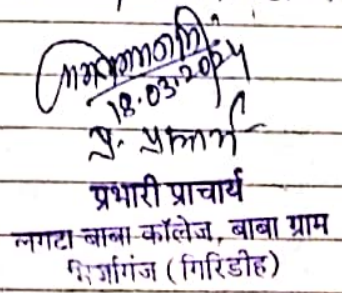 18.03.2024
प्र. प्राचार्य
प्रभारी प्राचार्य
लंगटा बाबा कॉलेज, बाबा ग्राम
मिर्जागंज (गिरिडीह)